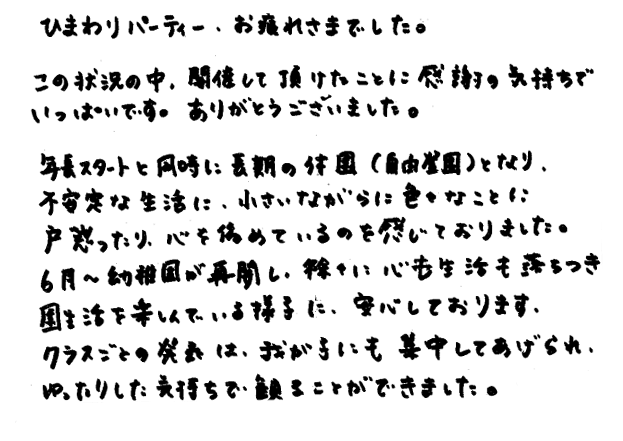 ひまわりパーティー、お疲れさまでした。
この状況の中、開催して頂けたことに感謝の気持ちで
いっぱいです。ありがとうございました。
年長スタートと同時に長期の休園（自由登園）となり、
不安定な生活に、小さいながらに色々なことに
戸惑ったり、心を痛めているのを感じておりました。
6月〜幼稚園が再開し、徐々に心も生活も落ちつき
園生活を楽しんでいる様子に、安心しております。
クラスごとの発表は、我が子にも集中してあげられ、
ゆったりした気持ちで観ることができました。